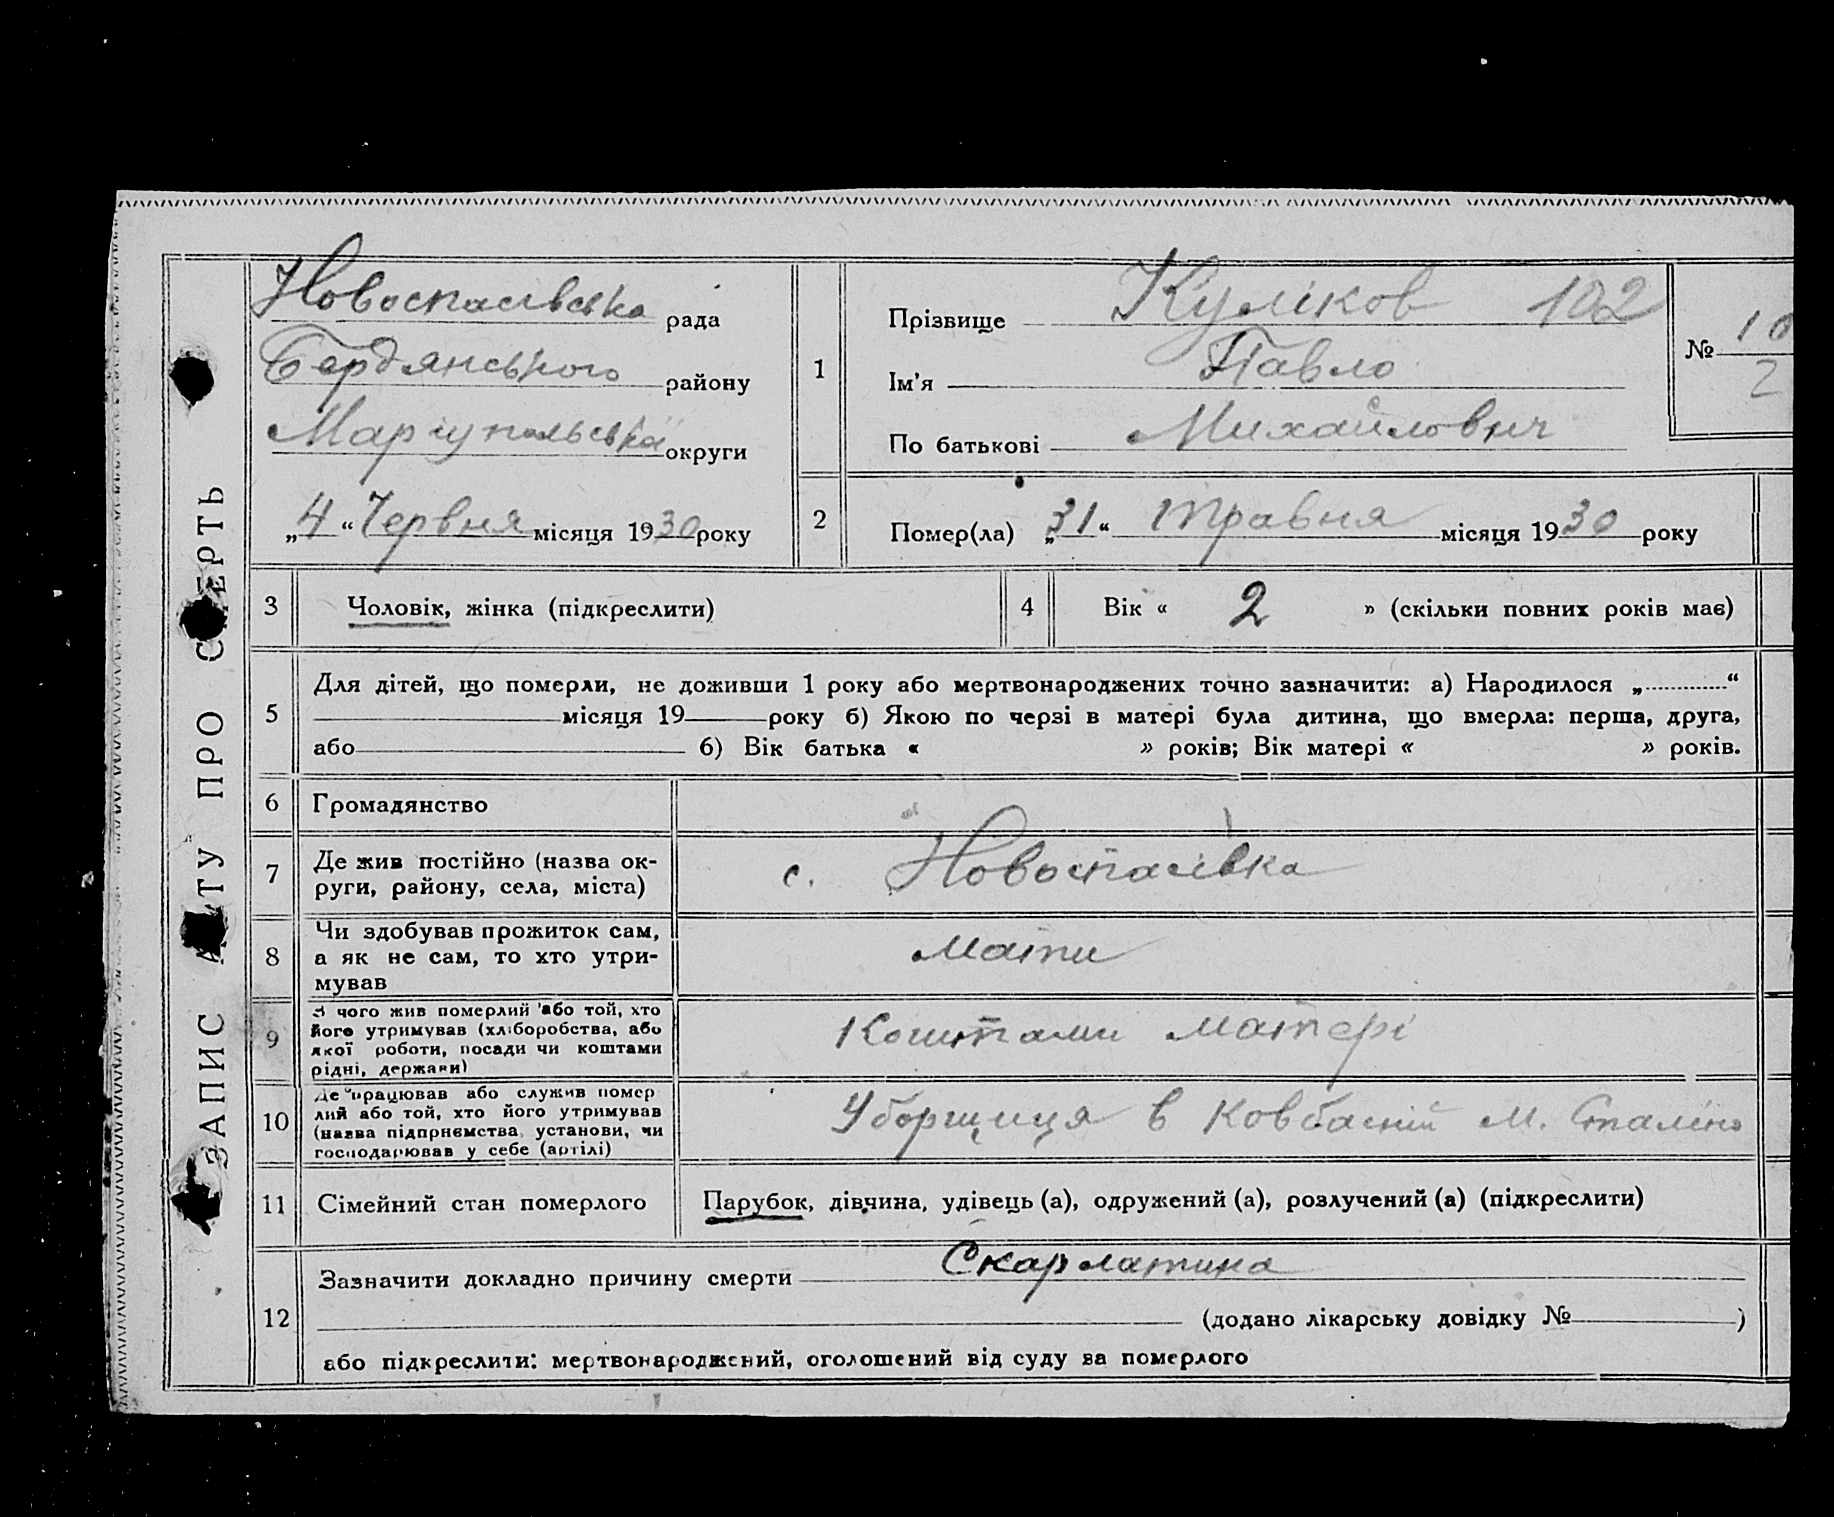 ЗАПИС АКТУ ПРО СМЕРТЬ
Новоспасівська рада
Бердянського району
Маріупольської округи
„4“ Червня місяця 1930 року
1
Прізвище Куліков 102
Ім’я Павло
По батькові Михайлович
№ 10
2
2
Помер(ла) „31“ травня місяця 1930 року
3 Чоловік, жінка (підкреслити)
4 Вік « 2 » (скільки повних років має)
5
Для дітей, що померли, не доживши 1 року або мертвонароджених точно зазначити: а) Народилося „............“
місяця 19 року б) Якою по черзі в матері була дитина, що вмерла: перша, друга,
або б) Вік батька « » років; Вік матері « » років.
6 Громадянство
7
Де жив постійно (назва ок-
руги, району, села, міста)
с. Новоспасівка
8
Чи здобував прожиток сам,
а як не сам, то хто утри-
мував
мати
9
З чого жив померлий або той, хто
його утримував (хліборобства, або
якої роботи, посади чи коштами
рідні, держави)
Коштами матері
10
Де працював або служив помер
лий або той, хто його утримував
(назва підприємства, установи, чи
господарював у себе (артілі)
Уборщиця в Ковбасній м. Сталіно
11 Сімейний стан померлого
Парубок, дівчина, удівець (а), одружений (а), розлучений (а) (підкреслити)
12
Зазначити докладно причину смерти Скарлатина
(додано лікарську довідку № )
або підкреслити: мертвонароджений, оголошений від суду за померлого